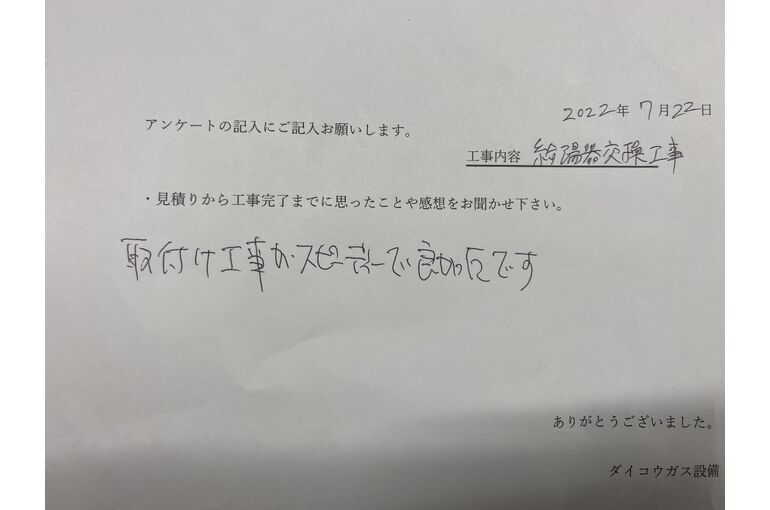 2022年 7月22日
アンケートの記入にご記入お願いします。
工事内容 給陽器交換工事
・見積りから工事完了までに思ったことや感想をお聞かせ下さい。
取付け工事がスピーディーで良かったです
ありがとうございました。
ダイコウガス設備